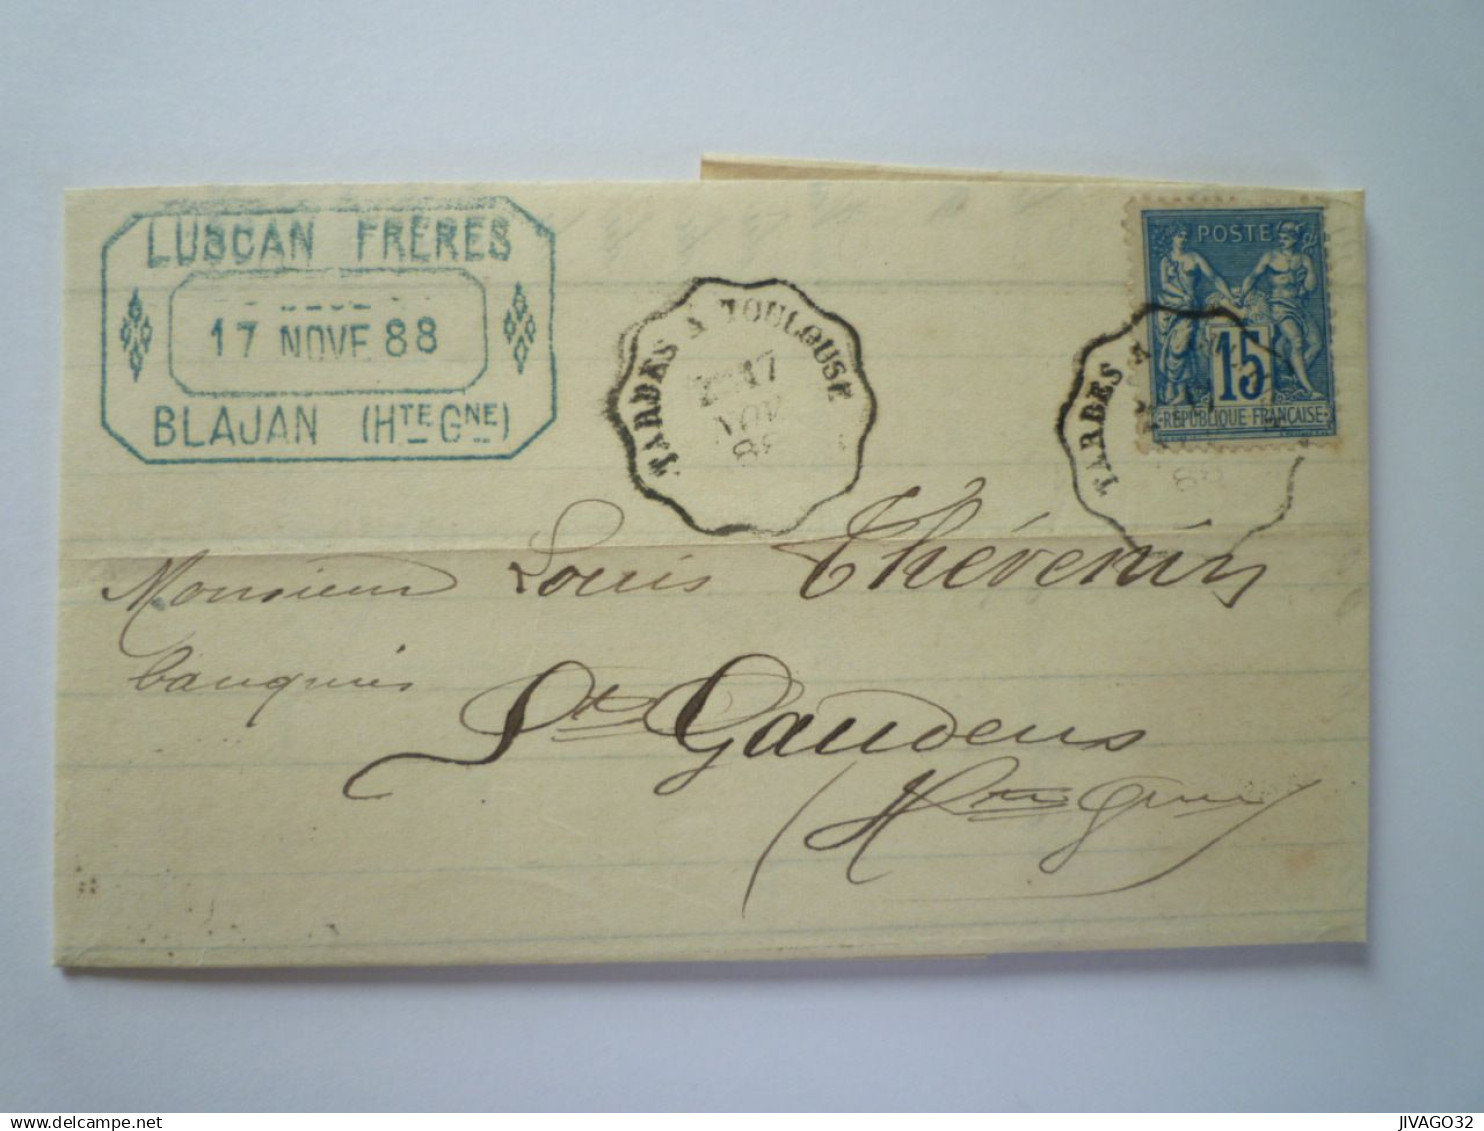 LUSCAN FRÈRES
17 NOVE 88
BLAJAN (HTE GNE)
TARBES A TOULOUSE
17
NOV
88
POSTE
15
RÉPUBLIQUE FRANÇAISE
TARBES A
88
Monsieur Louis Thévenin
banquier
St Gaudens
(Hte Gnne)
JIVAGO32
delcampe.net